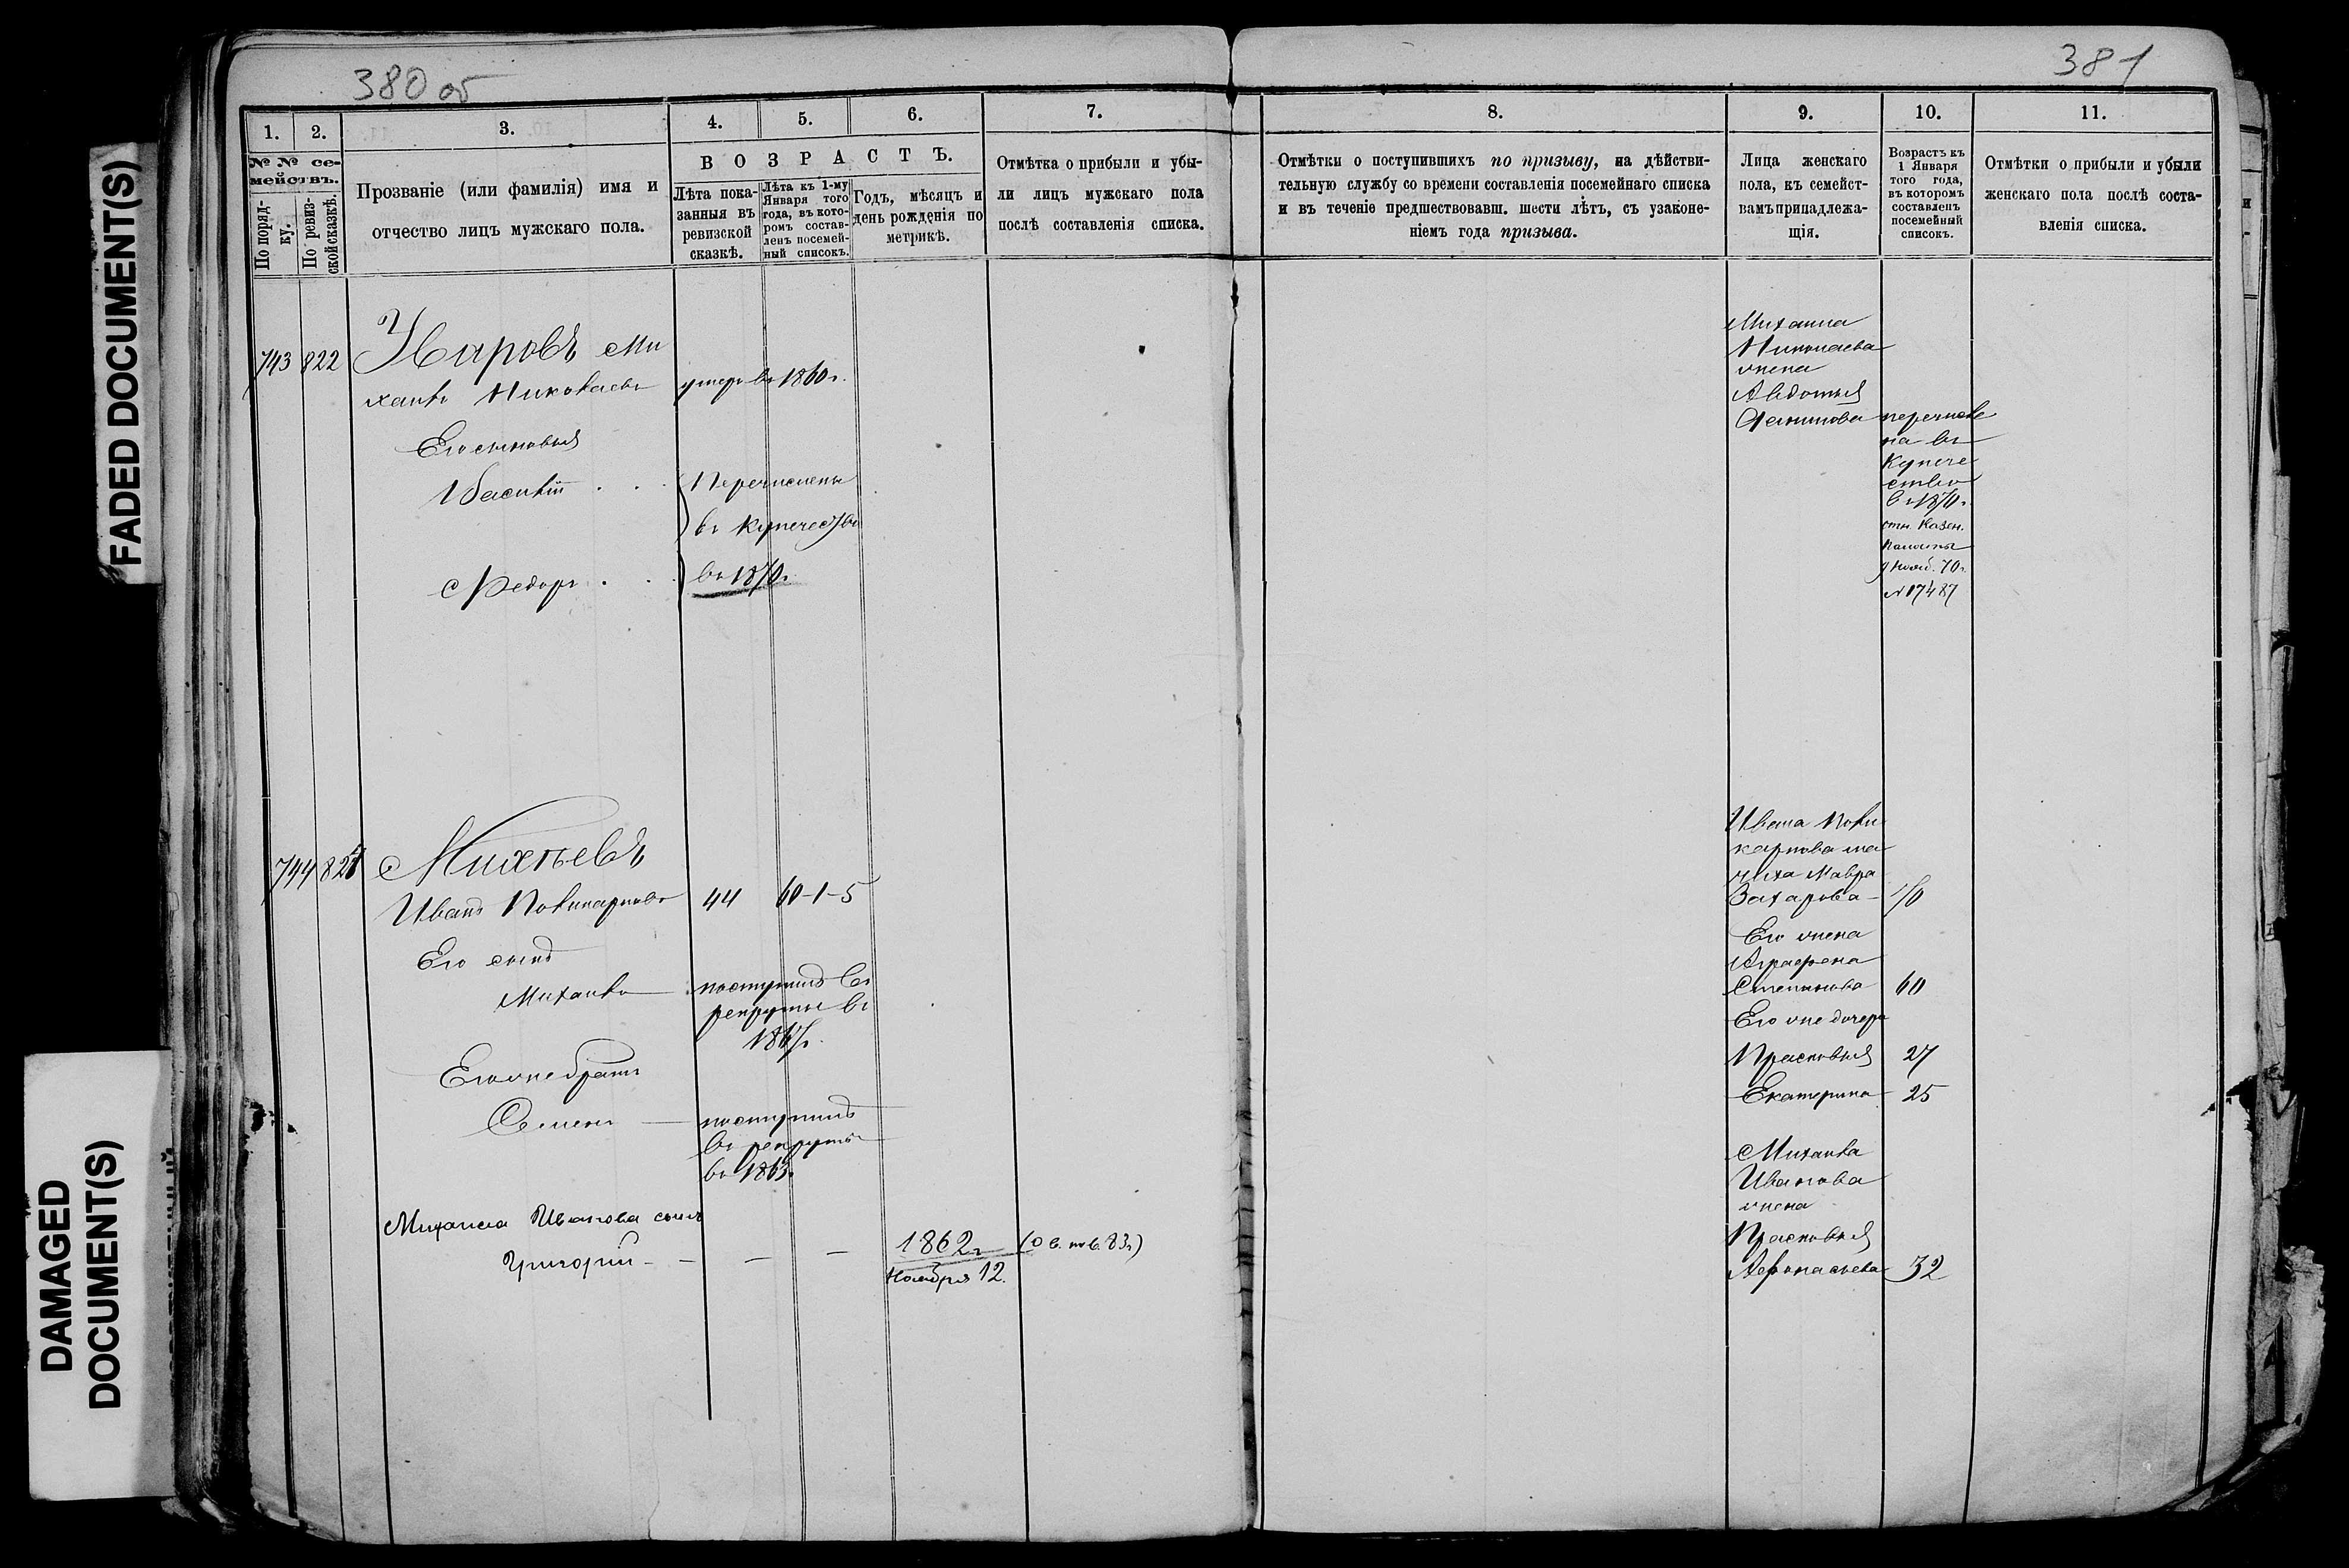 FADED DOCUMENT(S)
DAMAGED
DOCUMENT(S)
380 об
1. 2. 3. 4. 5. 6. 7.
№№ се-
мействъ.
По поряд-
ку.
По ревиз-
ской сказкѣ.
Прозваніе (или фамилія) имя и
отчество лицъ мужскаго пола.
ВОЗРАСТЪ.
Лѣта пока-
занныя въ
ревизской
сказкѣ.
Лѣта къ 1-му
Января того
года, въ кото-
ромъ состав-
ленъ посемей-
ный списокъ.
Годъ, мѣсяцъ и
день рожденія по
метрикѣ.
Отмѣтка о прибыли и убы-
ли лицъ мужскаго пола
послѣ составленія списка.
743 822
Уваровъ Ми
хаилъ Николаевъ умеръ въ 1860 г.
Его сыновья
Василій
Перечислены
въ купечество
Федоръ
въ 1870 г.
744 Михѣевъ
Иванъ Поликарповъ 44 60-1-5
Его сынъ
Михаилъ поступилъ въ
рекруты въ
Его же братъ
Семенъ поступилъ
въ рекруты
въ 1863 г.
Михаила Иванова сынъ
Григорій 1862 г
Ноября 12.
381
8. 9. 10. 11.
Отмѣтки о поступившихъ по призыву, на дѣйстви-
тельную службу со времени составленія посемейнаго списка
и въ теченіе предшествовавш. шести лѣтъ, съ узаконе-
ніемъ года призыва.
Лица женскаго
пола, къ семейст-
вамъ принадлежа-
щія.
Возрастъ къ
1 Января
того года,
въ которомъ
составленъ
посемейный
списокъ.
Отмѣтки о прибыли и убыли
женскаго пола послѣ соста-
вленія списка.
Михаила
Николаева
жена
Авдотья
перечисле
на въ
купече
ство
въ 1870 г.
отн. Казен.
Палаты
9 нояб. 70 г.
№ 17487
Ивана Поли
карпова ма
чиха Мавра
Захарова 70
Его жена
Аграфена
Степанова 60
Его же дочери
Прасковья 27
Екатерина 25
Михаила
Иванова
жена
Прасковья
Афонасьева 32